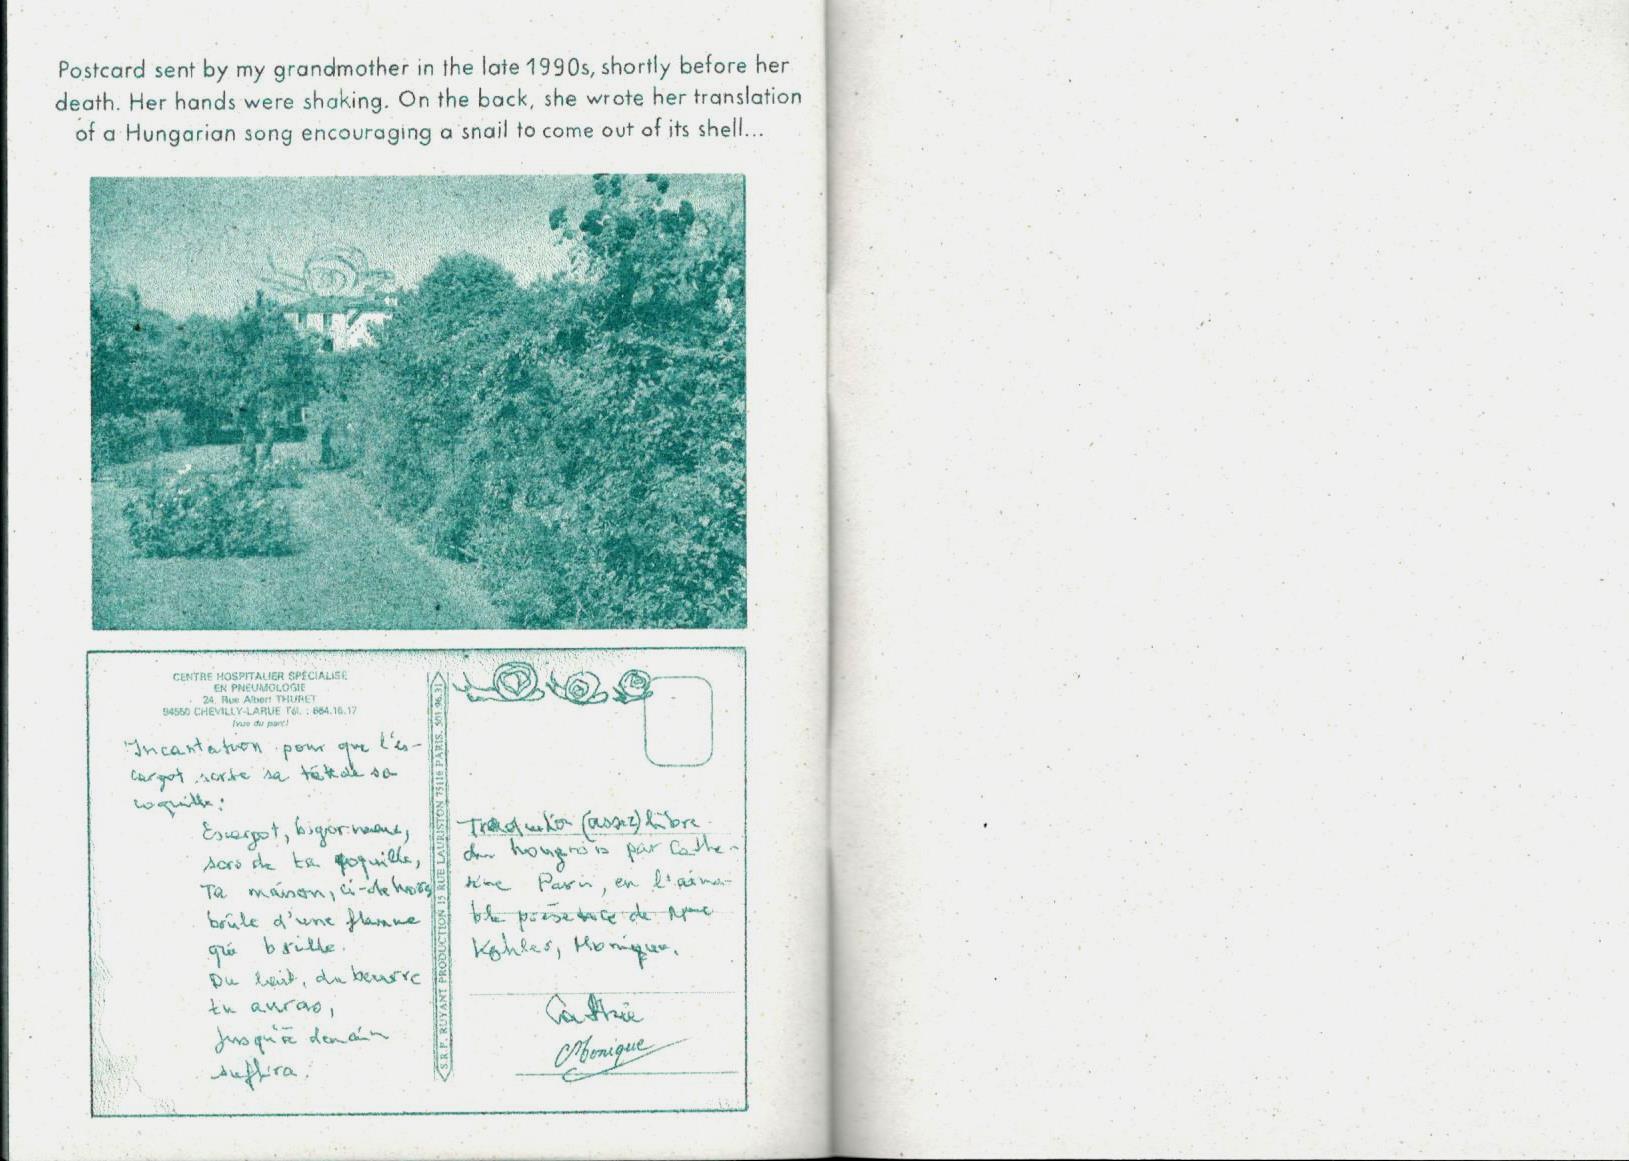 Postcard sent by my grandmother in the late 1990s, shortly before her
death. Her hands were shaking. On the back, she wrote her translation
of a Hungarian song encouraging a snail to come out of its shell...
CENTRE HOSPITALIER SPÉCIALISÉ
EN PNEUMOLOGIE
24, Rue Albert THURET
94550 CHEVILLY-LARUE Tél. : 664.16.17
(vue du parc)
Incantation pour que l'es-
cargot sorte sa tête de sa
coquille:
Escargot, bigorneau,
sors de ta coquille,
Ta maison, ci-dehors
brûle d'une flamme
qui brille.
Du lait, du beurre
tu auras,
jusqu'à demain
suffira.
S.R.P. RUYANT PRODUCTION 15 RUE LAURISTON 75116 PARIS. 501.96.31
Traduction (assez) libre
du hongrois par Cathe-
rine Paris, en l'aima-
ble présence de Mme
Kohler, Monique.
Monique